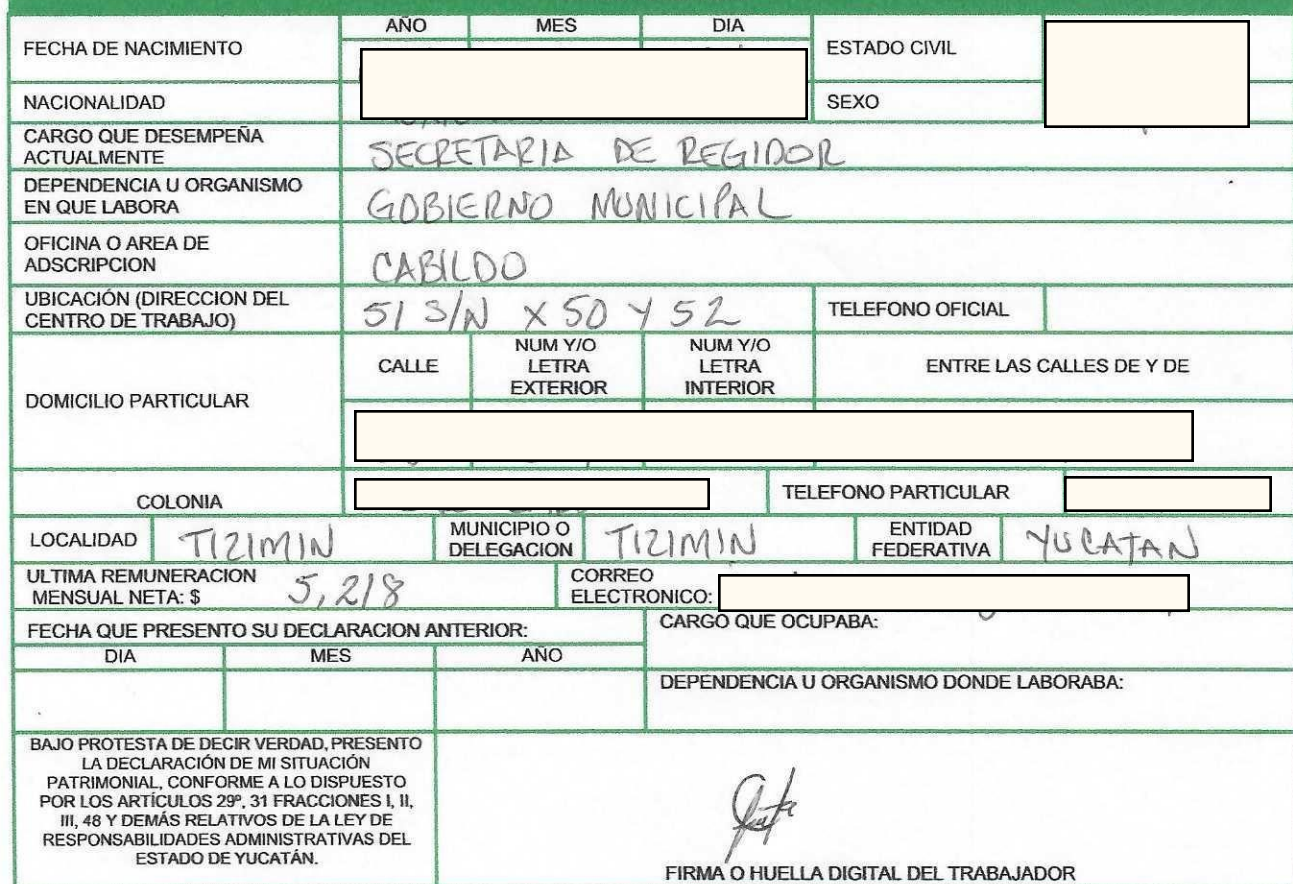 AÑO MES DIA
FECHA DE NACIMIENTO
ESTADO CIVIL
NACIONALIDAD
SEXO
CARGO QUE DESEMPEÑA
ACTUALMENTE
SECRETARIA DE REGIDOR
DEPENDENCIA U ORGANISMO
EN QUE LABORA
GOBIERNO MUNICIPAL
OFICINA O AREA DE
ADSCRIPCION
CABILDO
UBICACIÓN (DIRECCION DEL
CENTRO DE TRABAJO)
51 S/N X 50 Y 52
TELEFONO OFICIAL
DOMICILIO PARTICULAR
CALLE
NUM Y/O
LETRA
EXTERIOR
NUM Y/O
LETRA
INTERIOR
ENTRE LAS CALLES DE Y DE
COLONIA
TELEFONO PARTICULAR
LOCALIDAD
TIZIMIN
MUNICIPIO O
DELEGACION
TIZIMIN
ENTIDAD
FEDERATIVA
YUCATAN
ULTIMA REMUNERACION
MENSUAL NETA: $
5,218
CORREO
ELECTRONICO:
FECHA QUE PRESENTO SU DECLARACION ANTERIOR:
CARGO QUE OCUPABA:
DIA MES AÑO
DEPENDENCIA U ORGANISMO DONDE LABORABA:
BAJO PROTESTA DE DECIR VERDAD, PRESENTO
LA DECLARACIÓN DE MI SITUACIÓN
PATRIMONIAL, CONFORME A LO DISPUESTO
POR LOS ARTÍCULOS 29º, 31 FRACCIONES I, II,
III, 48 Y DEMÁS RELATIVOS DE LA LEY DE
RESPONSABILIDADES ADMINISTRATIVAS DEL
ESTADO DE YUCATÁN.
FIRMA O HUELLA DIGITAL DEL TRABAJADOR